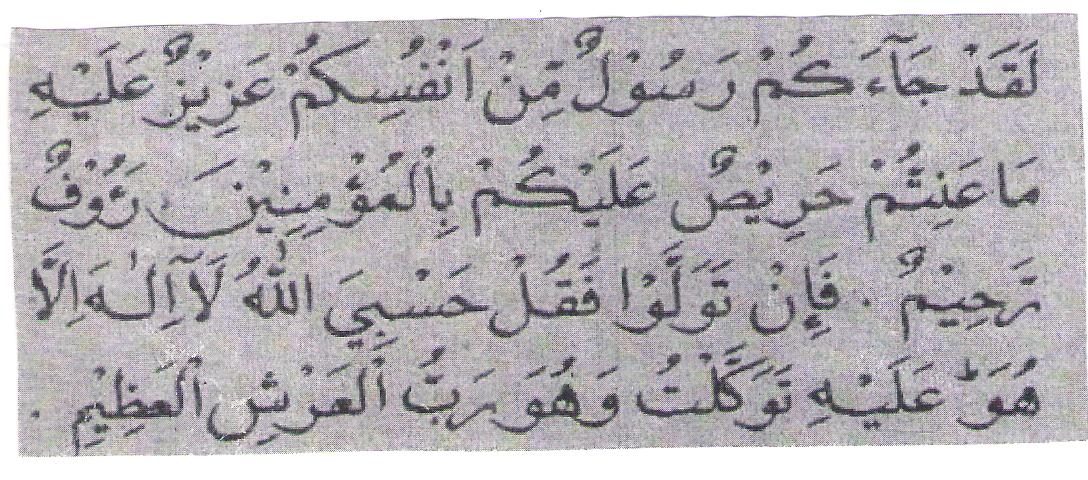 لَقَدْ جَآءَ كُمْ رَسُوْلٌ مِّنْ اَنْفُسِكُمْ عَزِيْزٌ عَلَيْهِ
مَا عَنِتُّمْ حَرِيْصٌ عَلَيْكُمْ بِاْلمُؤْمِنِيْنَ رَؤُوْفٌ
رَّحِيْمٌ . فَإِنْ تَوَلَّوْا فَقُلْ حَسْبِيَ اللّٰهُ لَآاِلٰهَ اِلَّا
هُوَ عَلَيْهِ تَوَكَّلْتُ وَهُوَ رَبُّ اْلعَرْشِ اْلعَظِيْمِ .